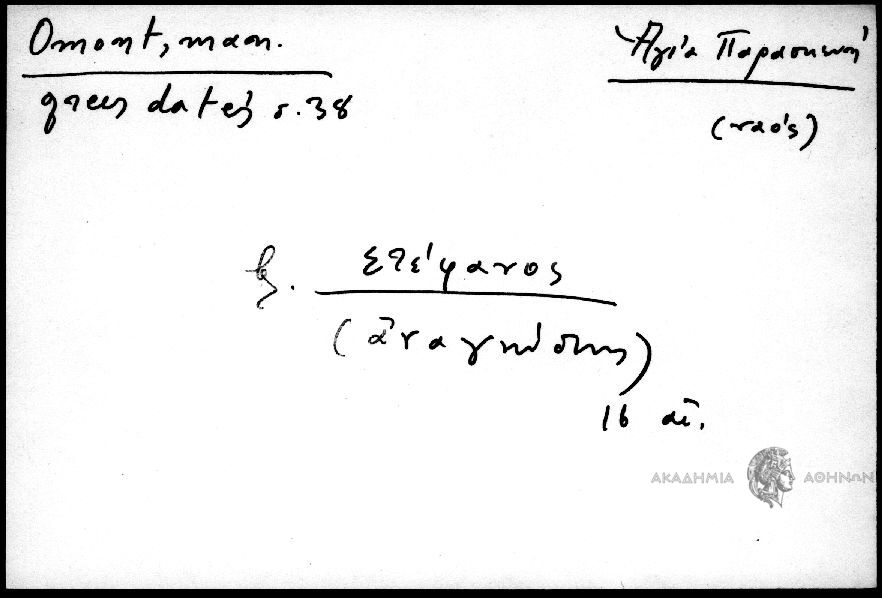 Omont, man.
grecs datés σ. 38
Ἁγία Παρασκευή
(ναός)
β. Στέφανος
(ἀναγνώστης)
16 αἰ.
ΑΚΑΔΗΜΙΑ ΑΘΗΝΩΝ